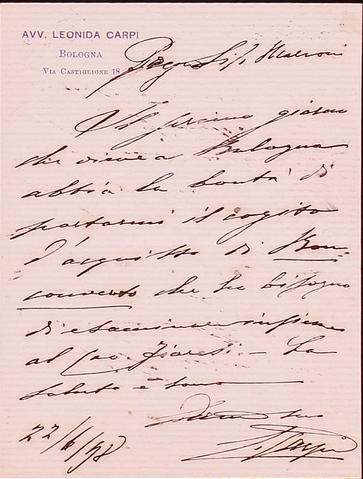 AVV. LEONIDA CARPI
BOLOGNA
VIA CASTIGLIONE 18
Pregmo Sig.
Il primo giorno
che viene a Bologna
abbia la bontà di
portarmi il rogito
d'acquisto di Bon-
convento che ho bisogno
di esaminare insieme
al Cav. - La
saluto e sono
suo
L Carpi
22/6/98